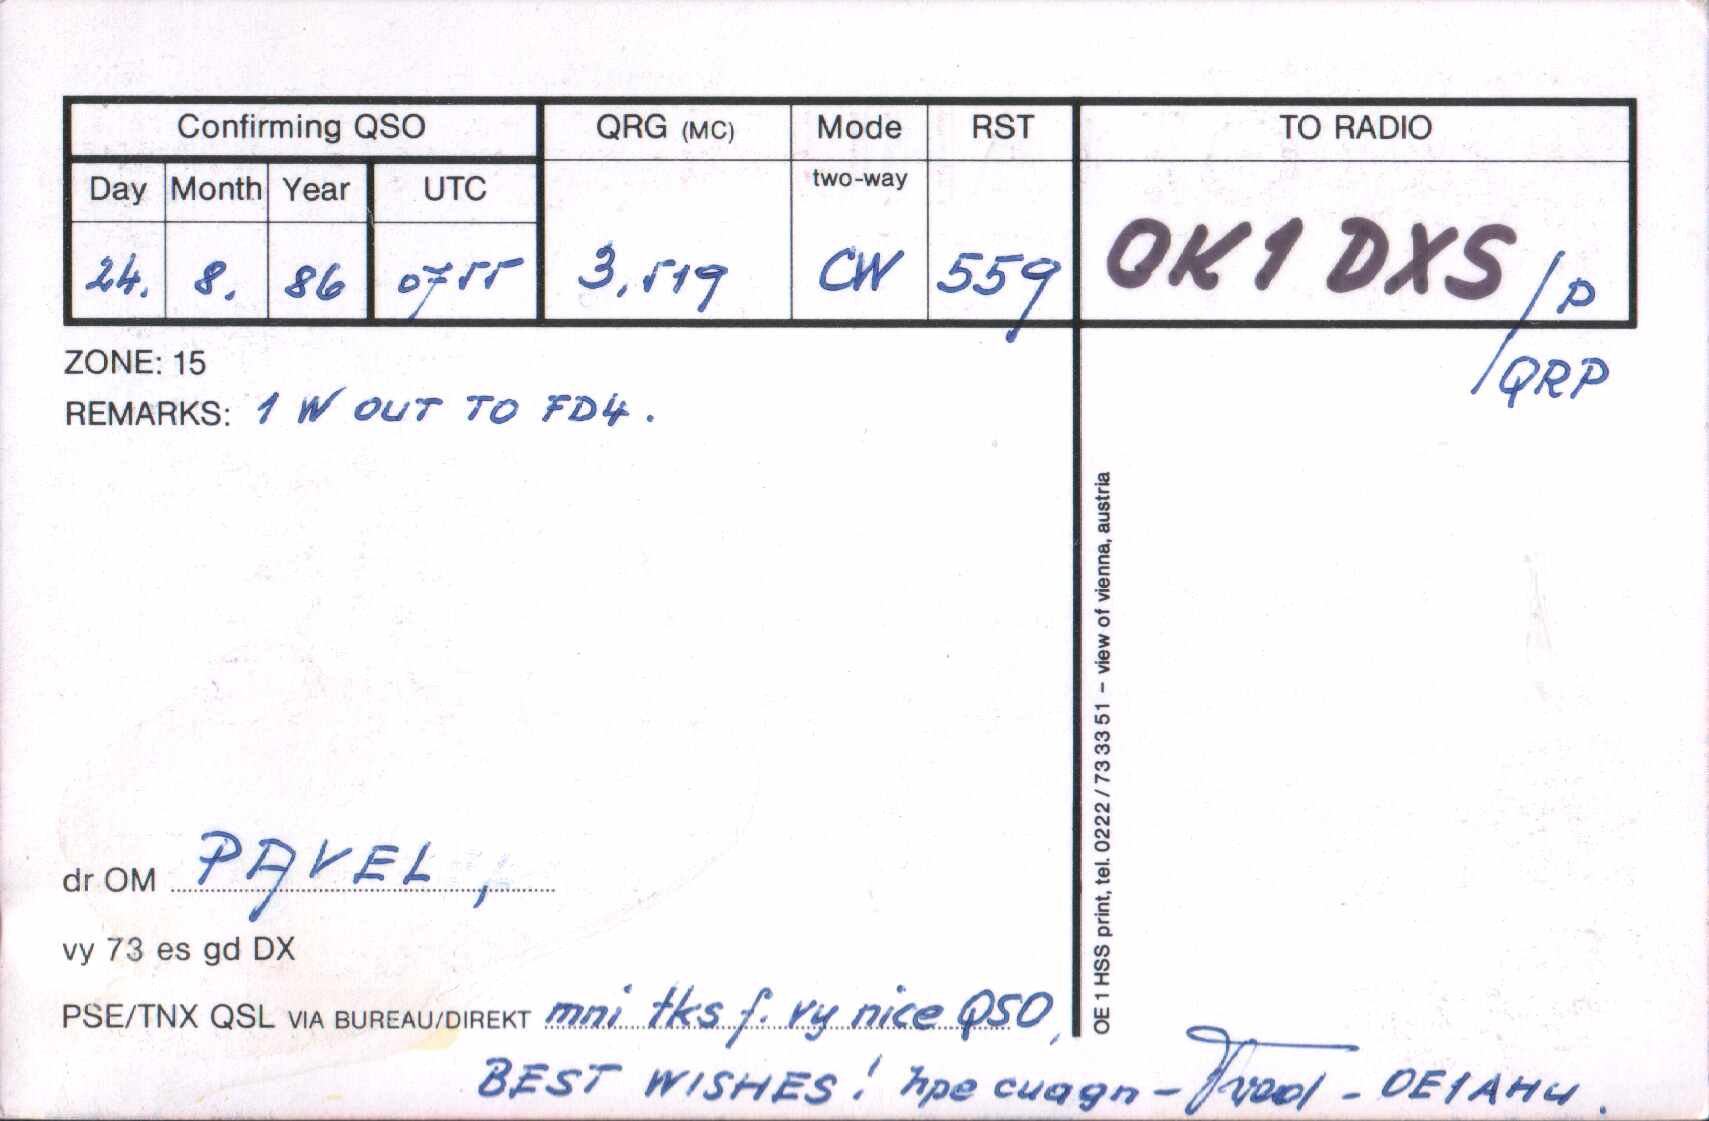 Confirming QSO QRG (MC) Mode RST TO RADIO
Day Month Year UTC two-way
24. 8. 86 0755 3,519 CW 559 OK1DXS /P
/QRP
ZONE: 15
REMARKS: 1 W OUT TO FD4.
dr OM PAVEL,
vy 73 es gd DX
PSE/TNX QSL VIA BUREAU/DIREKT mni tks f. vy nice QSO,
BEST WISHES! hpe cuagn - - OE1AHU.
OE 1 HSS print, tel. 0222 / 73 33 51 – view of vienna, austria